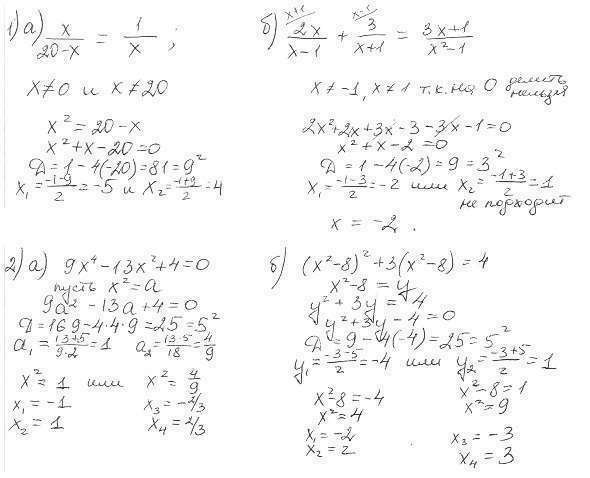 1) а) x/(20-x) = 1/x ;
x≠0 и x≠20
x² = 20-x
x²+x-20=0
D=1-4(-20)=81=9²
x₁=(-1-9)/2=-5 и x₂=(-1+9)/2=4
б) 2x/(x-1) (x+1 + 3/(x+1) (x-1 = (3x+1)/(x²-1)
x≠-1, x≠1 т.к. на 0 делить нельзя
2x²+2x+3x-3-3x-1=0
x²+x-2=0
D=1-4(-2)=9=3²
x₁=(-1-3)/2=-2 или x₂=(-1+3)/2=1
не подходит
x = -2 .
2) а) 9x⁴-13x²+4=0
пусть x²=a
9a²-13a+4=0
D=169-4·4·9=25=5²
a₁=(13+5)/(9·2)=1 a₂=(13-5)/18=4/9
x²=1 или x²=4/9
x₁=-1 x₃=-2/3
x₂=1 x₄=2/3
б) (x²-8)²+3(x²-8)=4
x²-8=y
y²+3y=4
y²+3y-4=0
D=9-4(-4)=25=5²
y₁=(-3-5)/2=-4 или y₂=(-3+5)/2=1
x²-8=-4 x²-8=1
x²=4 x²=9
x₁=-2 x₃=-3
x₂=2 x₄=3